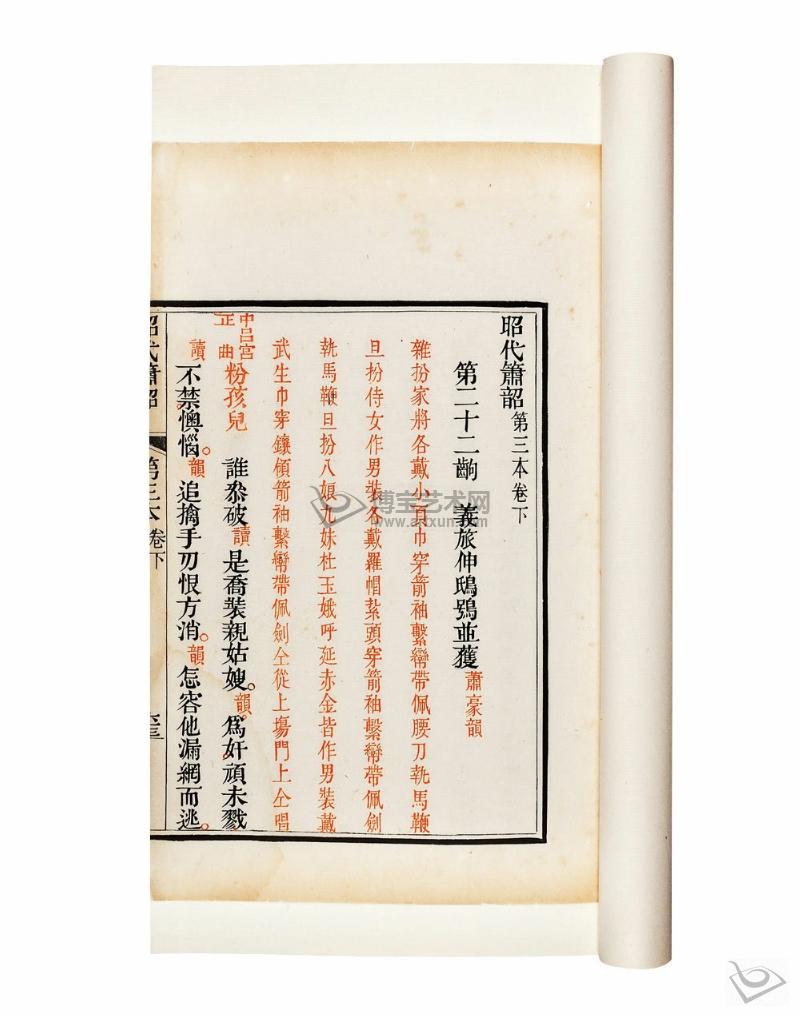 昭代簫韶 第三本卷下
第二十二齣 義旅伸鴟鴞並獲 蕭豪韻
雜扮家將各戴小頁巾穿箭袖繫鞶帶佩腰刀執馬鞭
旦扮侍女作男裝各戴羅帽紮頭穿箭袖繫鞶帶佩劍
執馬鞭旦扮八娘九妹杜玉娥呼延赤金皆作男裝戴
武生巾穿鑲領箭袖繫鞶帶佩劍仝從上塲門上仝唱
中呂宮正曲 粉孩兒 誰叅破讀是喬裝親姑嫂。韻爲奸頑未戮
讀不禁懊惱。韻追擒手刃恨方消。韻怎容他漏網而逃。
昭代簫韶 第三本卷下
博宝艺术网
www.artxun.com